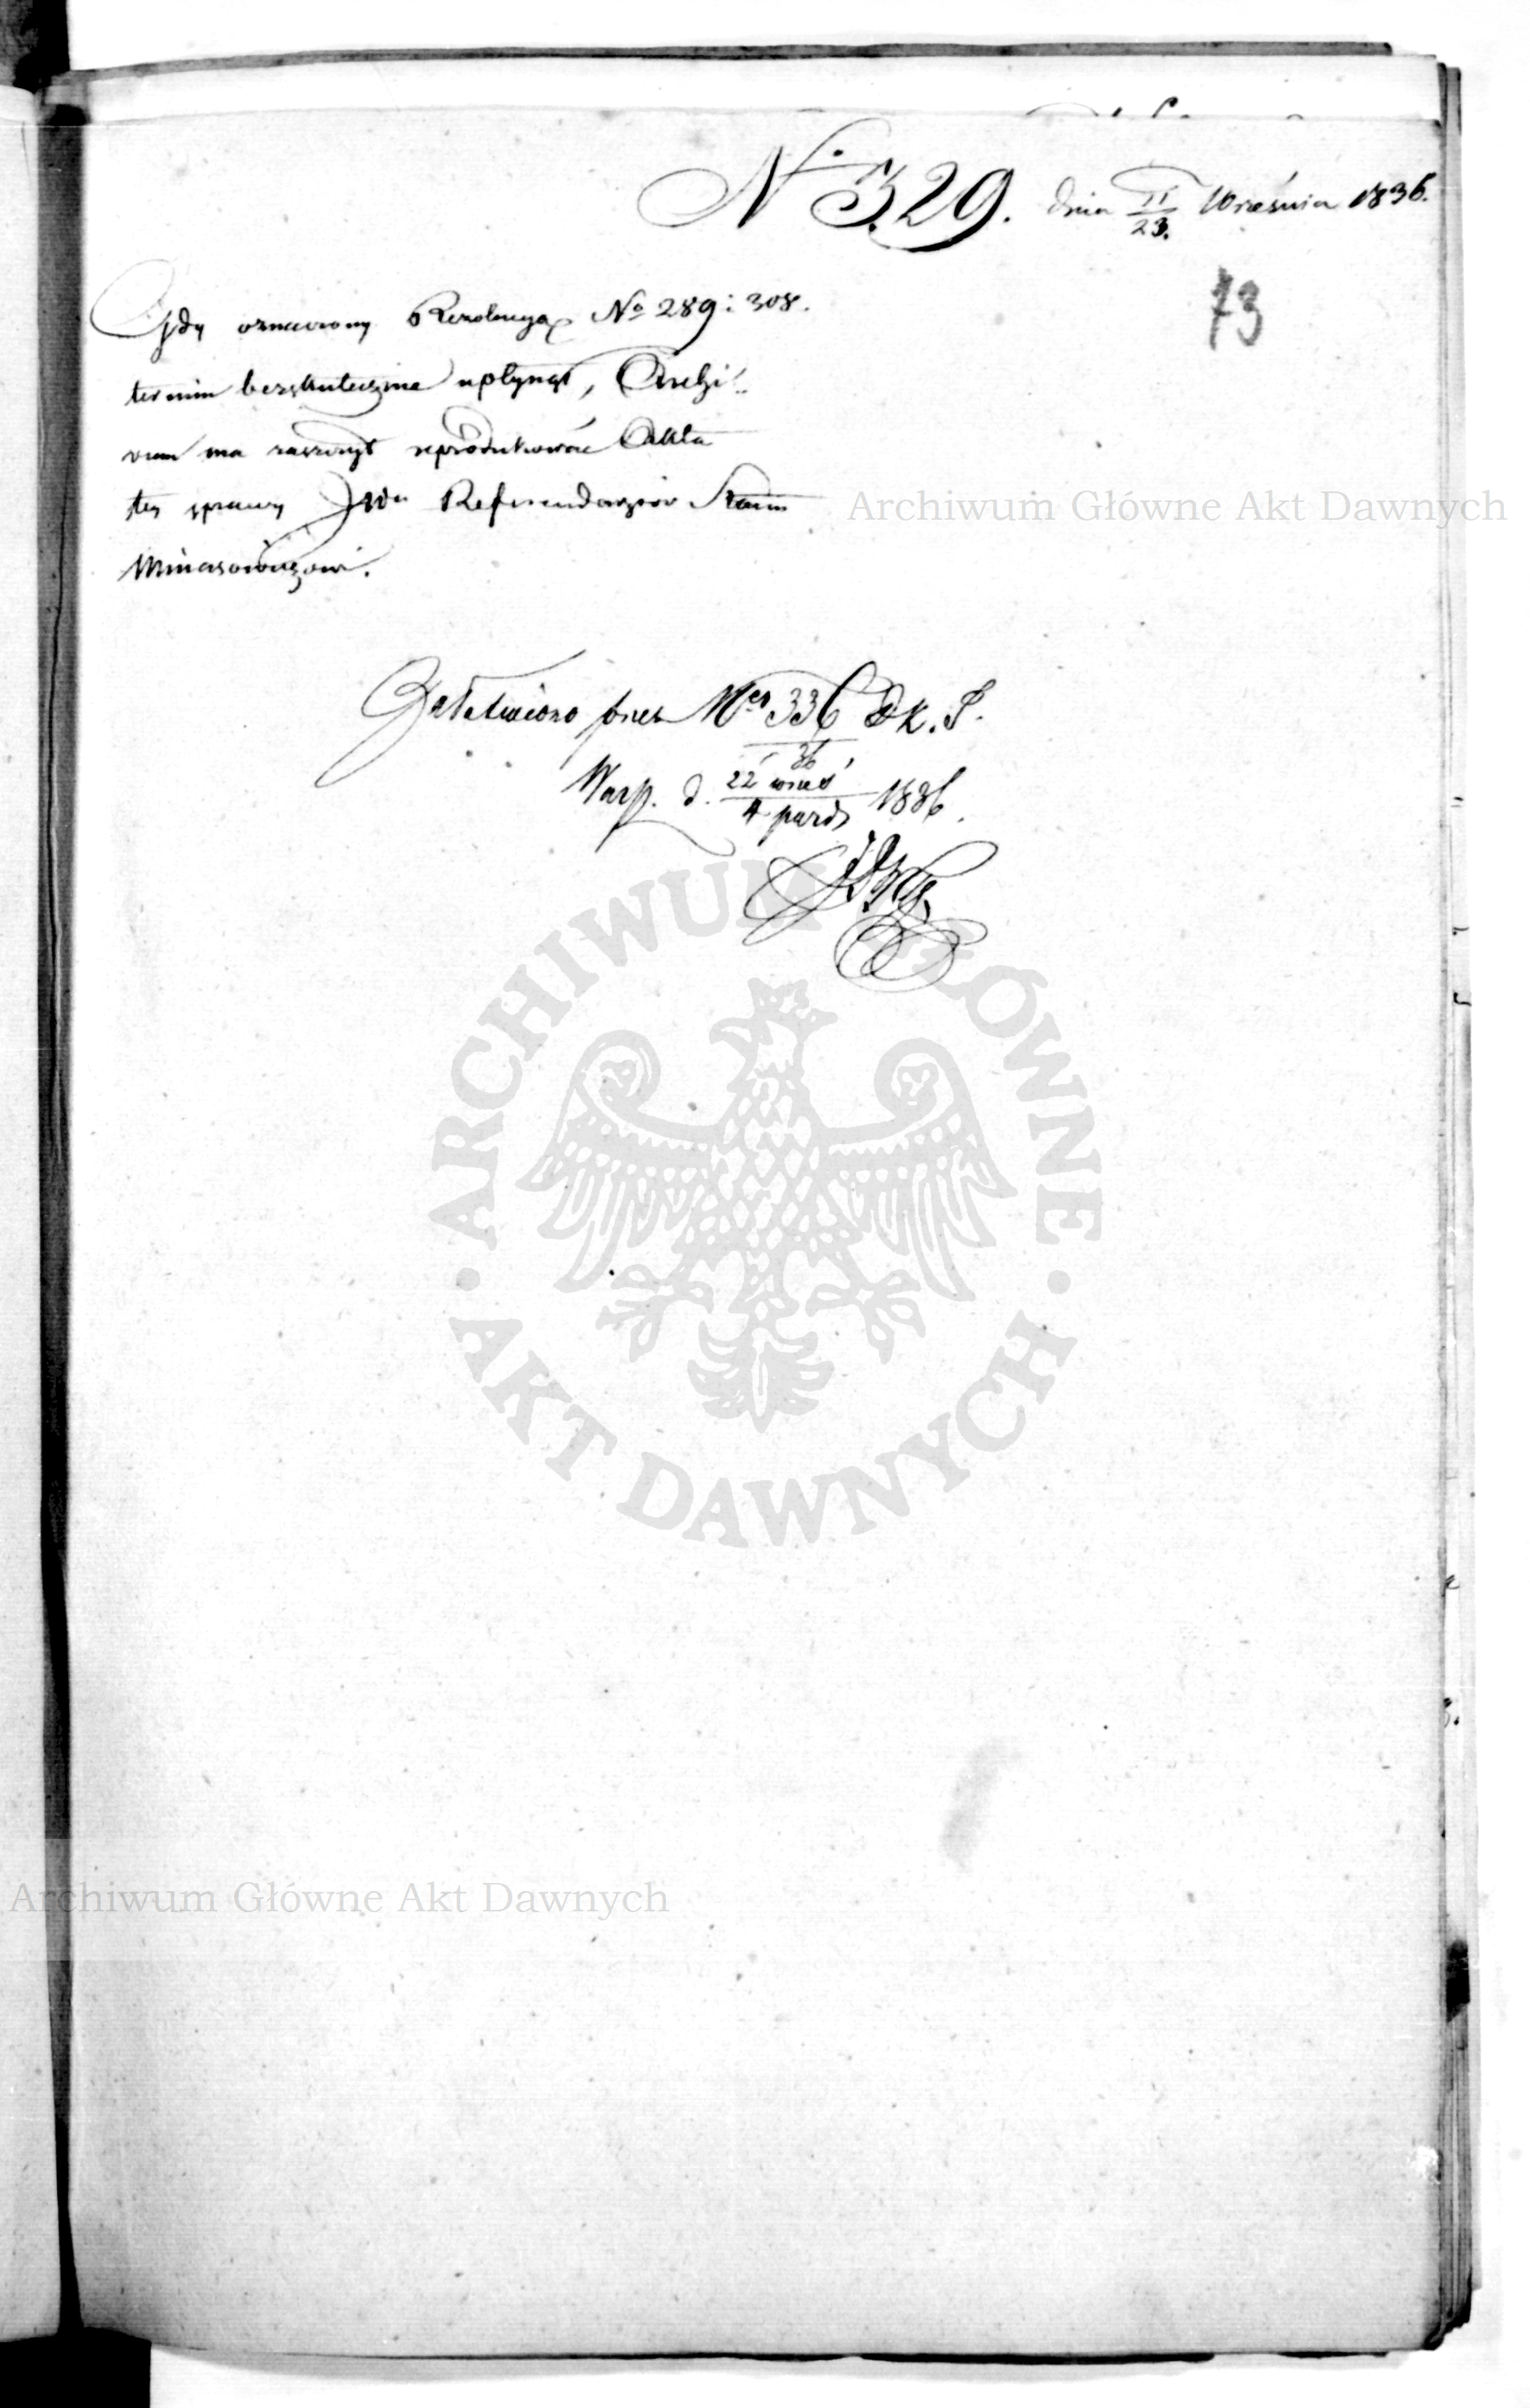 No 329. dnia 11/23. Września 1836.
73
Gdy oznaczony Rezolucyą No 289 i 308.
termin bezskutecznie upłynął, Archi-
vum ma zaszczyt reprodukować Akta
tey sprawy JWu Referendarzowi Stanu
Minasowiczowi.
Archiwum Główne Akt Dawnych
Załatwiono przez Ner 336/36 D.K.S.
Warsz. d. 22 wrześ/4 paźdz 1836.
ARCHIWUM GŁÓWNE · AKT DAWNYCH ·
Archiwum Główne Akt Dawnych